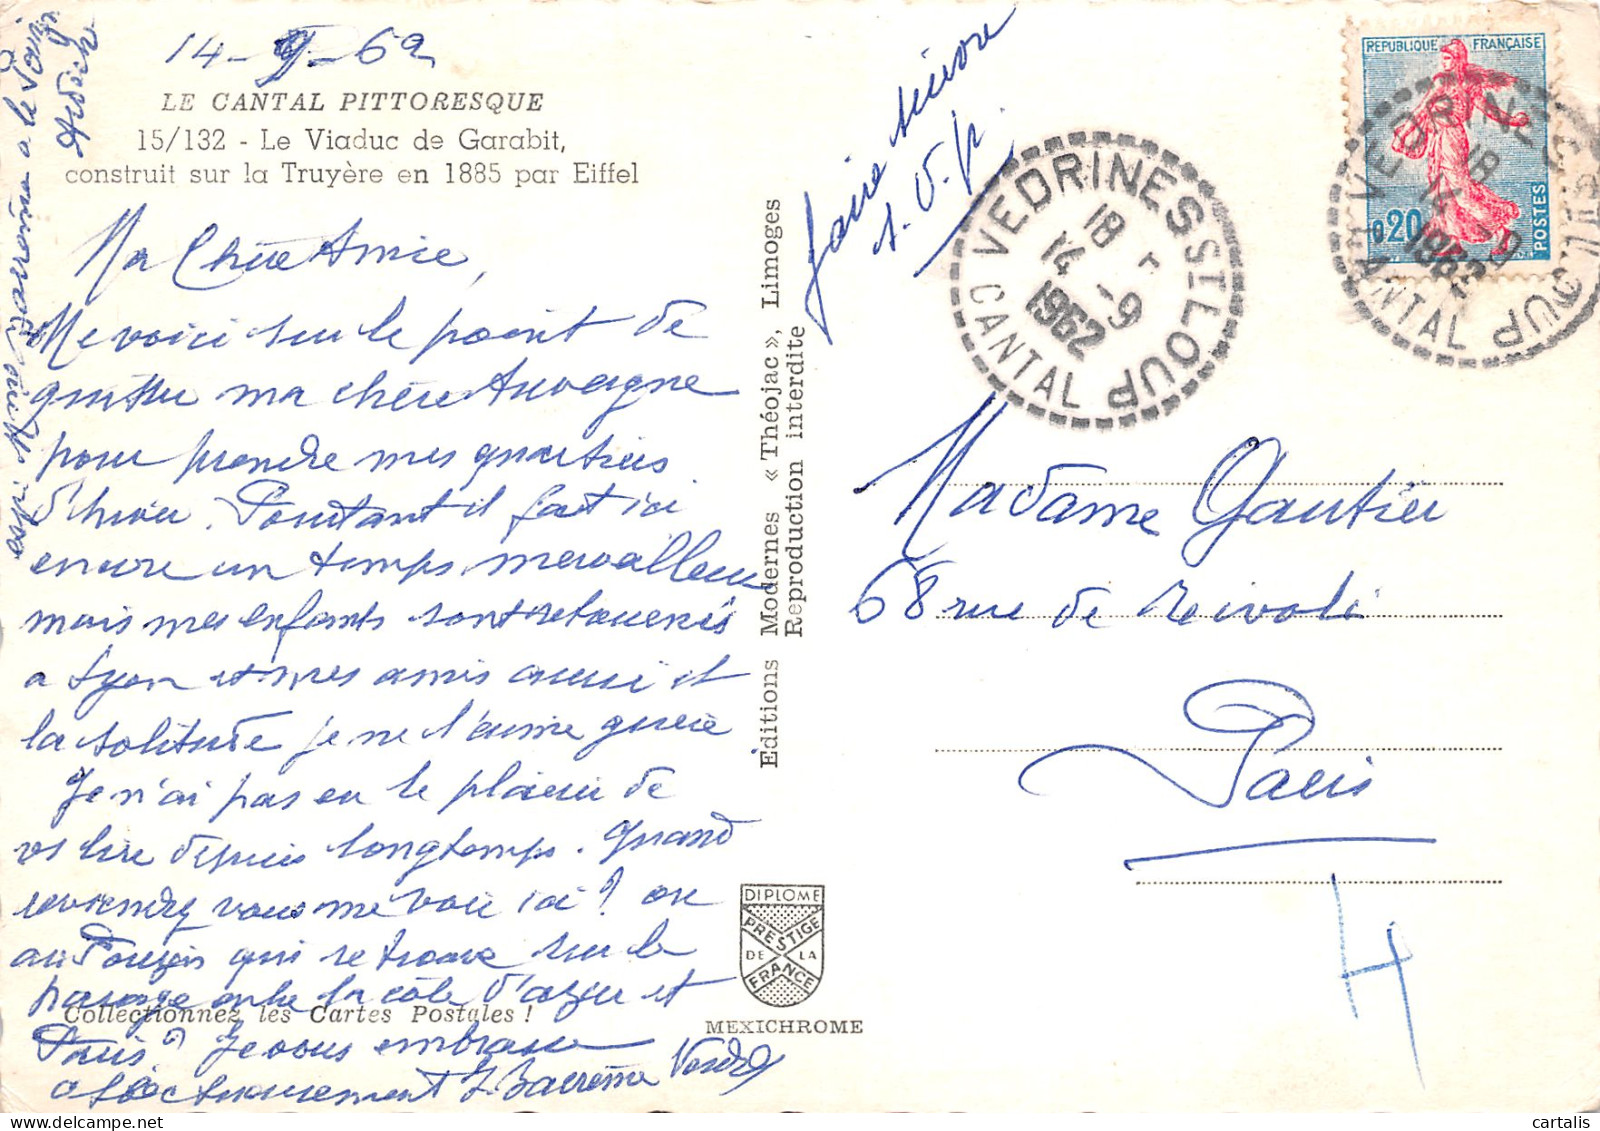 14-9-62
LE CANTAL PITTORESQUE
15/132 - Le Viaduc de Garabit,
construit sur la Truyère en 1885 par Eiffel
Ma Chère Amie,
Me voici sur le point de
quitter ma chère Auvergne
pour prendre mes quartiers
d'hiver. Pourtant il fait ici
encore un temps merveilleux
mais mes enfants sont retournés
a Lyon et mes amis aussi et
la solitude je ne l'aime guère
Je n'ai pas eu le plaisir de
vs lire depuis longtemps. Quand
reviendrez vous me voir ici ? ou
au Pouzin qui se trouve sur le
passage entre la côte d'azur et
Paris ? Je vous embrasse
affectueusement
Collectionnez les Cartes Postales !
Editions Modernes « Théojac », Limoges
Reproduction interdite
DIPLOME
PRESTIGE
DE LA
FRANCE
MEXICHROME
faire suivre
s. v. p.
VEDRINES ST LOUP
18 H
14 -9
1962
CANTAL
REPUBLIQUE FRANÇAISE
0,20
POSTES
VEDRINES ST LOUP
18
14 -9
1962
CANTAL
Madame Gautier
68 rue de Rivoli
Paris
cartalis